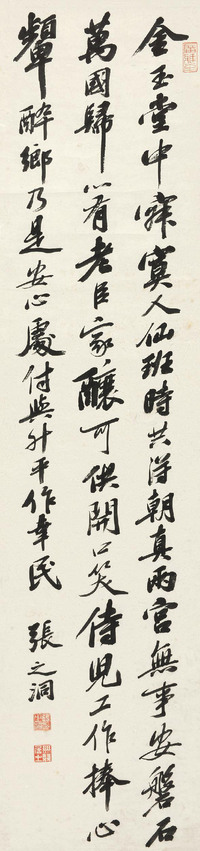 金玉堂中寂寞人仙班時共浔朝真兩宮無事安磐石
萬國歸心有老臣家釀可供開口笑侍兒工作捧心
顰醉鄉乃是安心處付與升平作幸民
張之洞